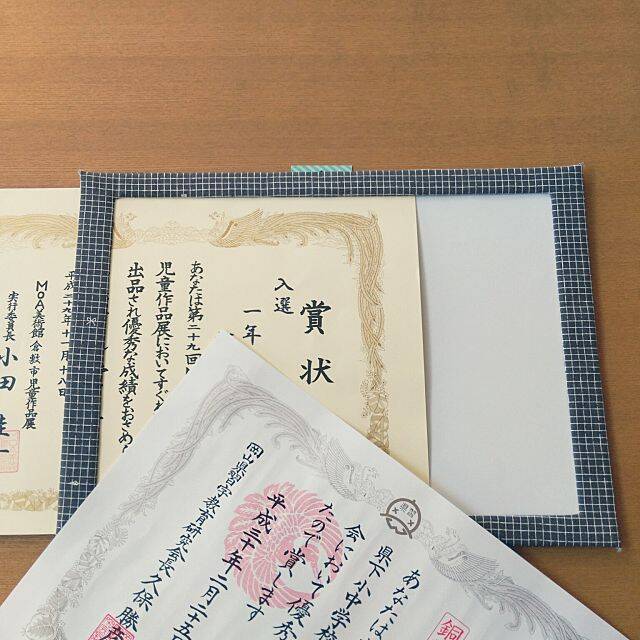 賞状
入選
一年
あなたは第二十九回M
児童作品展においてすぐれ
出品され優秀な成績をおさめ
平成二十九年十一月十八日
MOA美術館 倉敷市児童作品展
実行委員長 小田
銅
あなたは
県下小中学校
会において優秀
たので賞します
平成三十年二月二十五
岡山県習字教育研究会長 久保勝